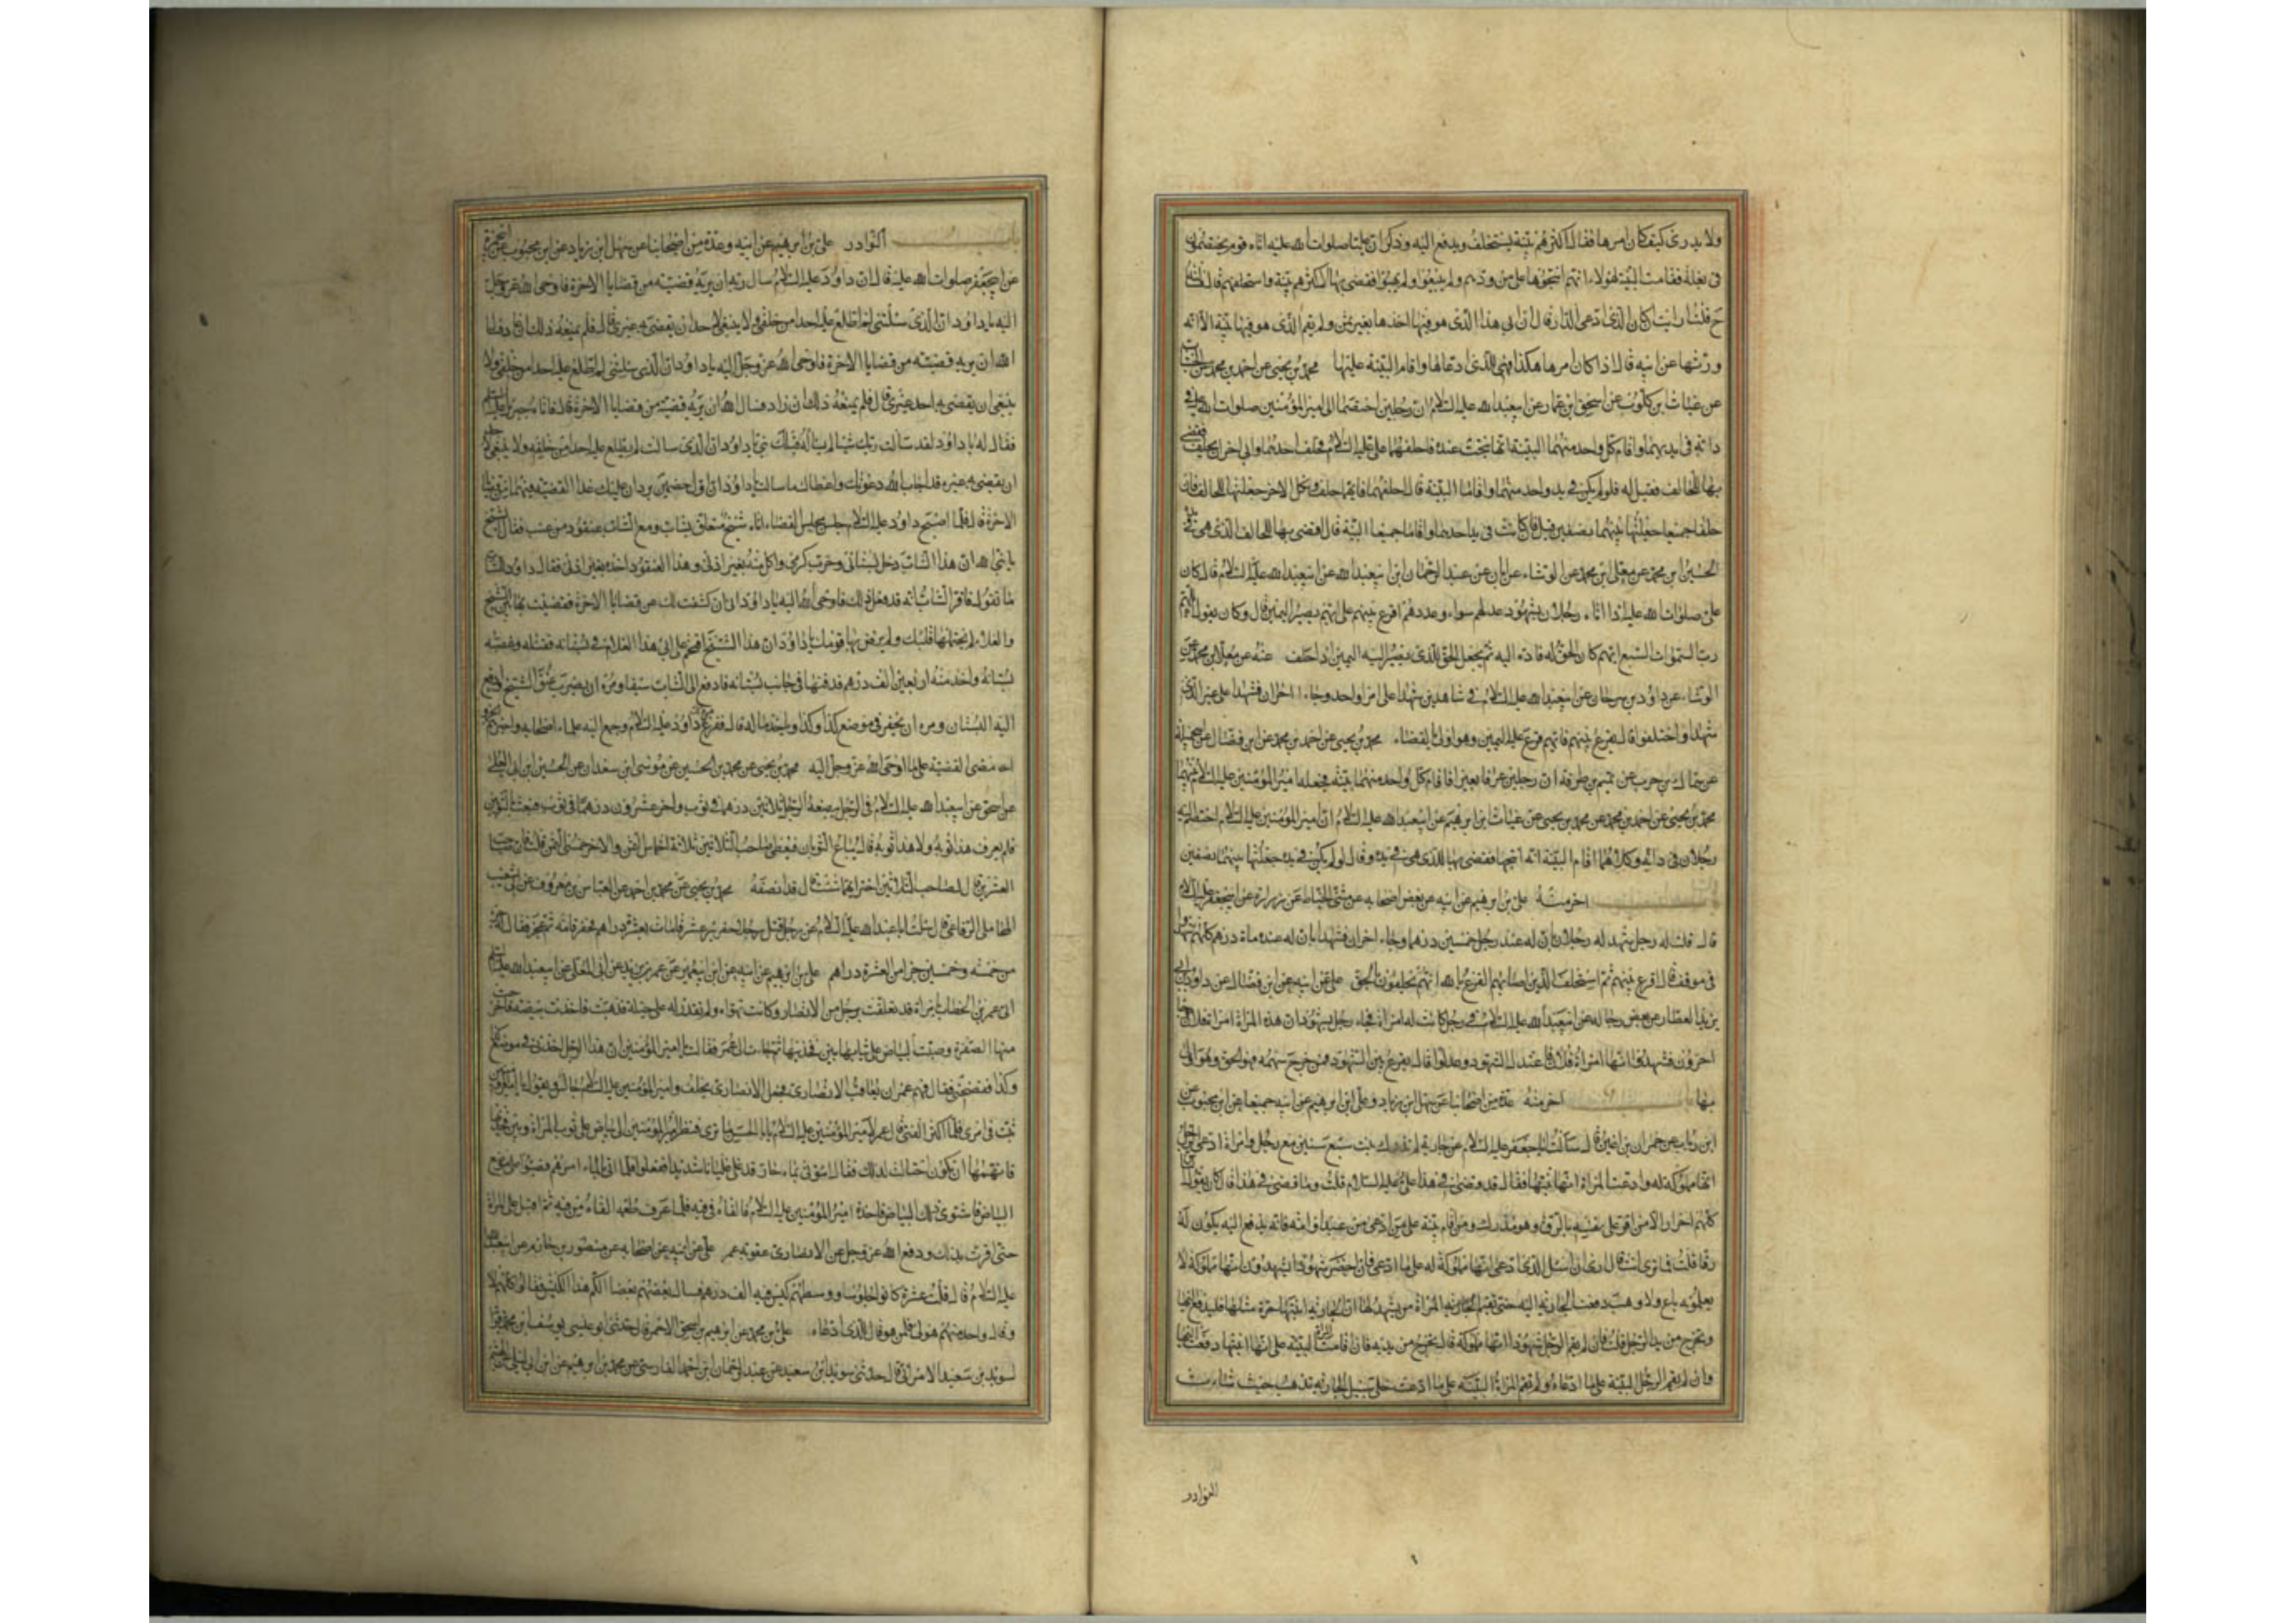 ولا يدرى كيف كان امرها فقال اكثرهم بينة يستحلف ويدفع اليه وذكر ان عليا صلوات الله عليه اتاه قوم يختصمون
فى بغلة فقامت البينة لهؤلاء انهم انتجوها على مذودهم ولم يبيعوا ولم يهبوا فقضى بها لاكثرهم بينة واستحلفهم قال
ح قلت ارايت ان كان الذى ادعى الدار قال ان ابى هذا الذى هو فيها اخذها بغير ثمن ولم يقم الذى هو فيها بينة الا انه
ورثها عن ابيه قال اذا كان امرها هكذا فهى للذى ادعاها واقام البينة عليها محمد بن يحيى عن احمد بن محمد عن الخشاب
عن غياث بن كلوب عن اسحق بن عمار عن ابيعبد الله عليه السلام ان رجلين اختصما الى امير المؤمنين صلوات الله عليه فى
دابة فى ايديهما واقام كل واحد منهما البينة انها نتجت عنده فاحلفهما على عليه السلام فحلف احدهما وابى الاخر ان يحلف فقضى
بها للحالف فقيل له فلو لم يكن فى يد واحد منهما واقاما البينة قال احلفهما فايهما حلف ونكل الاخر جعلتها للحالف فان
حلفا جميعا جعلتها بينهما نصفين قيل فان كانت فى يد احدهما واقاما جميعا البينة قال اقضى بها للحالف الذى هى فى يده
الحسين بن محمد عن معلى ابن محمد عن الوشاء عن ابان عن عبد الرحمان ابن ابيعبد الله عن ابيعبد الله عليه السلام قال كان
على صلوات الله عليه اذا اتاه رجلان بشهود عدلهم سواء وعددهم اقرع بينهم على ايهم يصير اليمين قال وكان يقول اللهم
رب السموات السبع ايهم كان الحق له فاده اليه ثم يجعل الحق للذى يصير اليه اليمين اذا حلف عنه عن معلى ابن محمد عن
الوشاء عن داود بن سرحان عن ابيعبد الله عليه السلام فى شاهدين شهدا على امر واحد وجاء اخران فشهدا على غير الذى
شهدا واختلفوا قال يقرع بينهم فايهم قرع عليه اليمين وهو اولى بالقضاء محمد بن يحيى عن احمد بن محمد عن ابن فضال عن ابى جميلة
عن سماك بن حرب عن تميم بن طرفة ان رجلين عرفا بعيرا فاقام كل واحد منهما بينة فجعله امير المؤمنين عليه السلام بينهما
محمد بن يحيى عن احمد بن محمد عن محمد بن يحيى عن غياث ابن ابرهيم عن ابيعبد الله عليه السلام ان امير المؤمنين عليه السلام اختصم اليه
رجلان فى دابة وكلاهما اقام البينة انه انتجها فقضى بها للذى هى فى يده وقال لو لم يكن فى يده جعلتها بينهما نصفين
اخر منه على بن ابرهيم عن ابيه عن بعض اصحابه عن مثنى الحناط عن زرارة عن ابيجعفر عليه السلام
قال قلت له رجل شهد له رجلان بان له عند رجل خمسين درهما وجاء اخران فشهدا بان له عنده مائة درهم كلهم شهدوا
فى موقف قال اقرع بينهم ثم استحلف الذين اصابهم القرع بالله انهم يحلفون بالحق على عن ابيه عن ابن فضال عن داود بن ابى
يزيد العطار عن بعض رجاله عن ابيعبد الله عليه السلام فى رجل كانت له امراة فجاء رجل بشهود ان هذه المراة امراة فلان وجاء
اخرون فشهدوا انها امراة فلان فاعتدل الشهود وعدلوا قال يقرع بين الشهود فمن خرج سهمه فهو المحق وهو اولى
بها اخر منه عدة من اصحابنا عن سهل ابن زياد وعلى ابن ابرهيم عن ابيه جميعا عن ابن محبوب عن
ابن رئاب عن حمران بن اعين قال سالت ابا جعفر عليه السلام عن جارية لم تدرك بنت سبع سنين مع رجل وامراة ادعى الرجل
انها مملوكة له وادعت المراة انها ابنتها فقال قد قضى فى هذا على عليه السلام قلت وما قضى فى هذا قال كان يقول الناس
كلهم احرار الا من اقر على نفسه بالرق وهو مدرك ومن اقام بينة على من ادعى من عبد او امة فانه يدفع اليه يكون له
رقا قلت فما ترى انت قال ارى ان اسئل الذى ادعى انها مملوكة له على ما ادعى فان احضر شهودا يشهدون انها مملوكة لا
يعلمونه باع ولا وهب دفعت الجارية اليه حتى تقيم المراة من يشهد لها ان الجارية ابنتها حرة مثلها فليدفع اليها
وتخرج من يد الرجل قلت فان لم يقم الرجل شهودا انها مملوكة قال تخرج من يده فان اقامت المراة البينة على انها ابنتها دفعت اليها
وان لم يقم الرجل البينة على ما ادعاه ولم تقم المراة البينة على ما ادعت خلى سبيل الجارية تذهب حيث شاءت
النوادر
باب النوادر على بن ابرهيم عن ابيه وعدة من اصحابنا عن سهل ابن زياد عن ابن محبوب عن ابى حمزة
عن ابيجعفر صلوات الله عليه قال ان داود عليه السلام سال ربه ان يريه قضية من قضايا الاخرة فاوحى الله عز وجل
اليه يا داود ان الذى سئلتنى لم اطلع عليه احدا من خلقى ولا ينبغى لاحد ان يقضى به غيرى قال فلم يمنعه ذلك ان عاد فدعا
الله ان يريه قضية من قضايا الاخرة فاوحى الله عز وجل اليه يا داود ان الذى سئلتنى لم اطلع عليه احدا من خلقى ولا
ينبغى ان يقضى به احد غيرى قال فلم يمنعه ذلك ان زاد فسال الله ان يريه قضية من قضايا الاخرة قال فاتاه جبرئيل عليه السلام
فقال له يا داود لقد سالت ربك شيئا لم يساله قبلك نبى يا داود ان الذى سالت لم يطلع عليه احدا من خلقه ولا ينبغى لاحد
ان يقضى به غيره قد اجاب الله دعوتك واعطاك ما سالت يا داود ان اول خصمين يردان عليك غدا القضية فيهما من قضايا
الاخرة قال فلما اصبح داود عليه السلام جلس فى مجلس القضاء اتاه شيخ متعلق بشاب ومع الشاب عنقود من عنب فقال الشيخ
يا نبى الله ان هذا الشاب دخل بستانى وخرب كرمى واكل منه بغير اذنى وهذا العنقود اخذه بغير اذنى فقال داود للشاب
ما تقول فاقر الشاب انه قد فعل ذلك فاوحى الله اليه يا داود انى ان كشفت لك عن قضايا الاخرة فقضيت بها بين الشيخ
والغلام لم يحتملها قلبك ولم يرض بها قومك يا داود ان هذا الشيخ اقتحم على ابى هذا الغلام فى بستانه فقتله وغصبه
بستانه واخذ منه اربعين الف درهم فدفنها فى جانب بستانه فادفع الى الشاب سيفا ومره ان يضرب عنق الشيخ وادفع
اليه البستان ومره ان يحفر فى موضع كذا وكذا وياخذ ماله قال ففزع من ذلك داود عليه السلام وجمع اليه علماء اصحابه واخبرهم الخبر و
امضى القضية على ما اوحى الله عز وجل اليه محمد بن يحيى عن محمد بن الحسين عن موسى ابن سعدان عن الحسين ابن ابى العلى
عن اسحق عن ابيعبد الله عليه السلام فى الرجل يبضعه الرجل ثلاثين درهما فى ثوب واخر عشرون درهما فى ثوب فبعث بالثوبين
فلم يعرف هذا ثوبه ولا هذا ثوبه قال يباع الثوبان فيعطى صاحب الثلاثين ثلاثة اخماس الثمن والاخر خمسى الثمن قلت فان صاحب
العشرين قال لصاحب الثلاثين اختر ايهما شئت قال قد انصفه محمد بن يحيى عن محمد بن احمد عن العباس بن معروف عن ابى شعيب
المحاملى الرفاعى قال سئلت ابا عبد الله عليه السلام عن رجل قبل رجلا يحفر بئر عشر قامات بعشرة دراهم فحفر قامة ثم عجز فقال له جزء
من خمسة وخمسين جزا من العشرة دراهم على بن ابرهيم عن ابيه عن ابن ابيعمير عن عمر بن يزيد عن ابى المعلى عن ابيعبد الله عليه السلام
الى عمر بن الخطاب بامراة قد تعلقت برجل من الانصار وكانت تهواه ولم تقدر له على حيلة فذهبت فاخذت بيضة فاخرجت
منها الصفرة وصبت البياض على ثيابها بين فخذيها ثم جاءت الى عمر فقالت يا امير المؤمنين ان هذا الرجل اخذنى فى موضع كذا
وكذا ففضحنى فقال فهم عمر ان يعاقب الانصارى فجعل الانصارى يحلف وامير المؤمنين عليه السلام جالس ويقول يا امير المؤمنين
تثبت فى امرى فلما اكثر الفتى قال عمر لامير المؤمنين عليه السلام يا ابا الحسن ما ترى فنظر امير المؤمنين الى بياض على ثوب المراة وبين فخذيها
فاتهمها ان تكون احتالت لذلك فقال ائتونى بماء حار قد غلى غليانا شديدا ففعلوا فلما اتى بالماء امرهم فصبوا على موضع
البياض فاشتوى ذلك البياض فاخذه امير المؤمنين عليه السلام فالقاه فى فيه فلما عرف طعمه القاه من فيه ثم اقبل على المراة
حتى اقرت بذلك ودفع الله عز وجل عن الانصارى عقوبة عمر على عن ابيه عن اصحابه عن منصور بن حازم عن ابيعبد الله
عليه السلام قال قلت عشرة كانوا جلوسا ووسطهم كيس فيه الف درهم فسال بعضهم بعضا الكم هذا الكيس فقالوا كلهم لا
وقال واحد منهم هو لى فلمن هو قال للذى ادعاه على بن محمد عن ابرهيم بن اسحق الاحمر قال حدثنى ابو عيسى يوسف ابن محمد قرابة
لسويد بن سعيد الامرانى قال حدثنى سويد ابن سعيد عن عبد الرحمان ابن احمد الفارسى عن محمد بن ابرهيم عن ابن ابى ليلى عن الهيثم